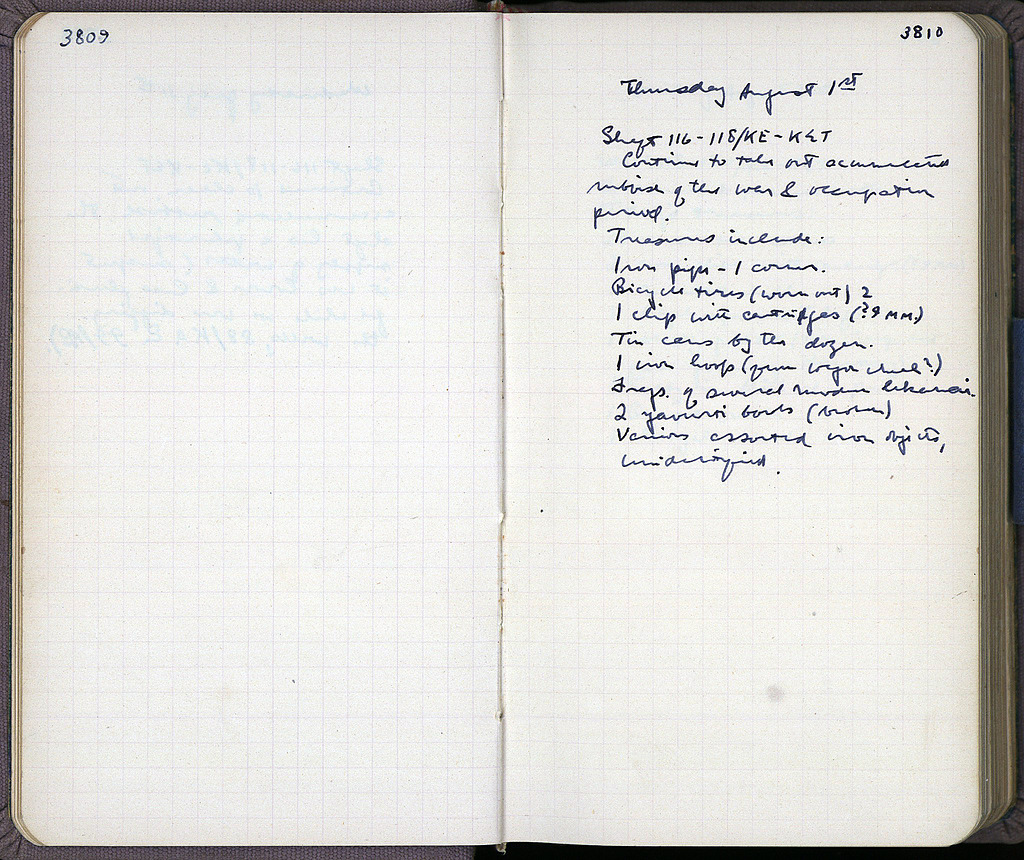 3809
3810
Thursday August 1st
Shaft 116-118/KE-KET
Continue to take out accumulated
rubbish of the war & occupation
period.
Treasures include:
Iron pipe - 1 corner.
Bicycle tires (worn out) 2
1 clip with cartridges (?9 MM.)
Tin cans by the dozen.
1 iron hoop (from wagon wheel?)
Frags. of several modern lekanai.
2 yaourti bowls (broken)
Various assorted iron objects,
unidentified.